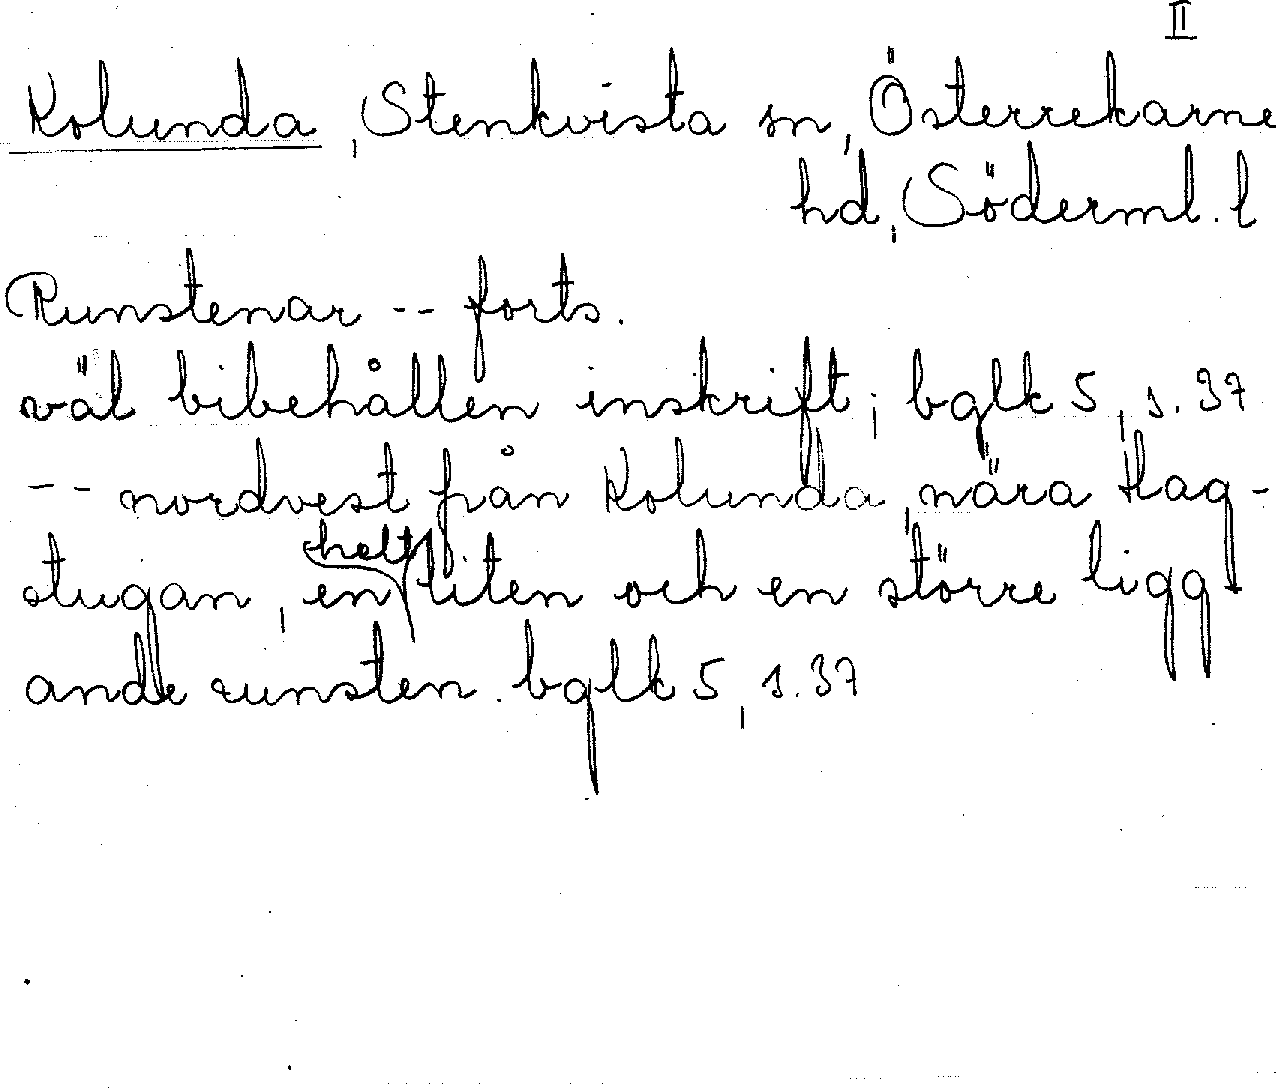 II
Kolunda, Stenkvista sn, Österrekarne
hd, Söderml. l
Runstenar -- forts.
väl bibehållen inskrift; bglk 5, s. 37
-- nordvest från Kolunda, nära Hag-
stugan, en helt liten och en större ligg-
ande runsten. bglk 5, s. 37